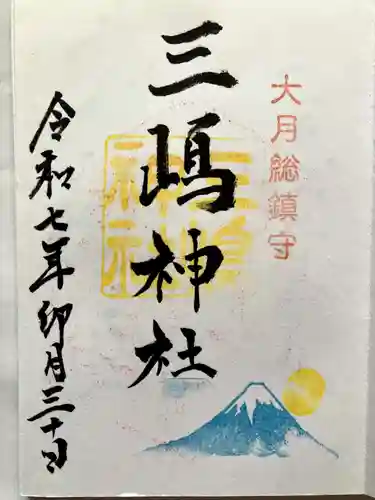 大月総鎮守
三嶋神社
三嶋神社
令和七年卯月三十日